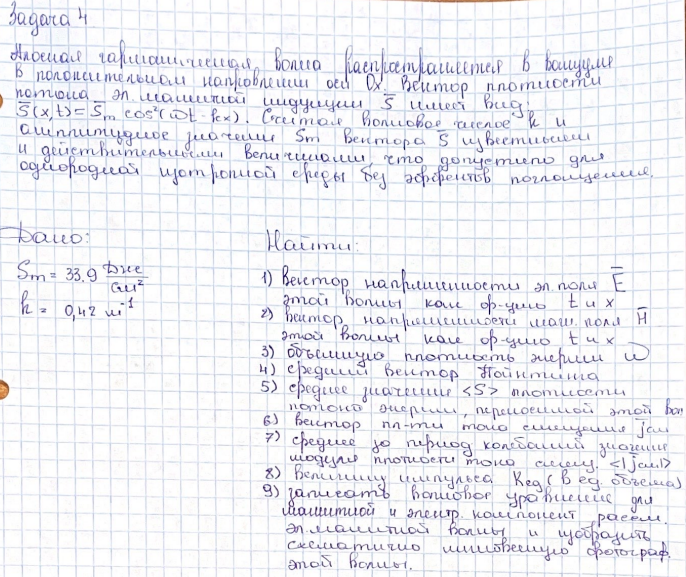 Задача 4
Плоская гармоническая волна распространяется в вакууме
в положительном направлении оси Ox. Вектор плотности
потока эл. магнитной индукции S̄ имеет вид:
S̄(x,t) = S̄m cos²(ωt - kx). Считая волновое число k и
амплитудное значение Sm вектора S̄ известными
и действительными величинами, что допустимо для
однородной изотропной среды без эффектов поглощения.
Дано:
Sm = 33,9
k = 0,42 м⁻¹
Найти:
1) Вектор напряженности эл. поля Ē
этой волны как ф-цию t и x
2) Вектор напряженности маг. поля H̄
этой волны как ф-цию t и x
3) объемную плотность энергии ω
4) средний вектор Пойнтинга
5) среднее значение <S> плотности
потока энергии, переносимой этой
6) Вектор пл-ти тока смещения jсм
7) среднее за период колебаний значение
модуля плотности тока смещ. <|jсм|>
8) Величину импульса Kед (в ед. объема)
9) записать волновое уравнение для
магнитной и электр. компонент рассм.
эл. магнитной волны и изобразить
схематично мгновенную фотограф.
этой волны.